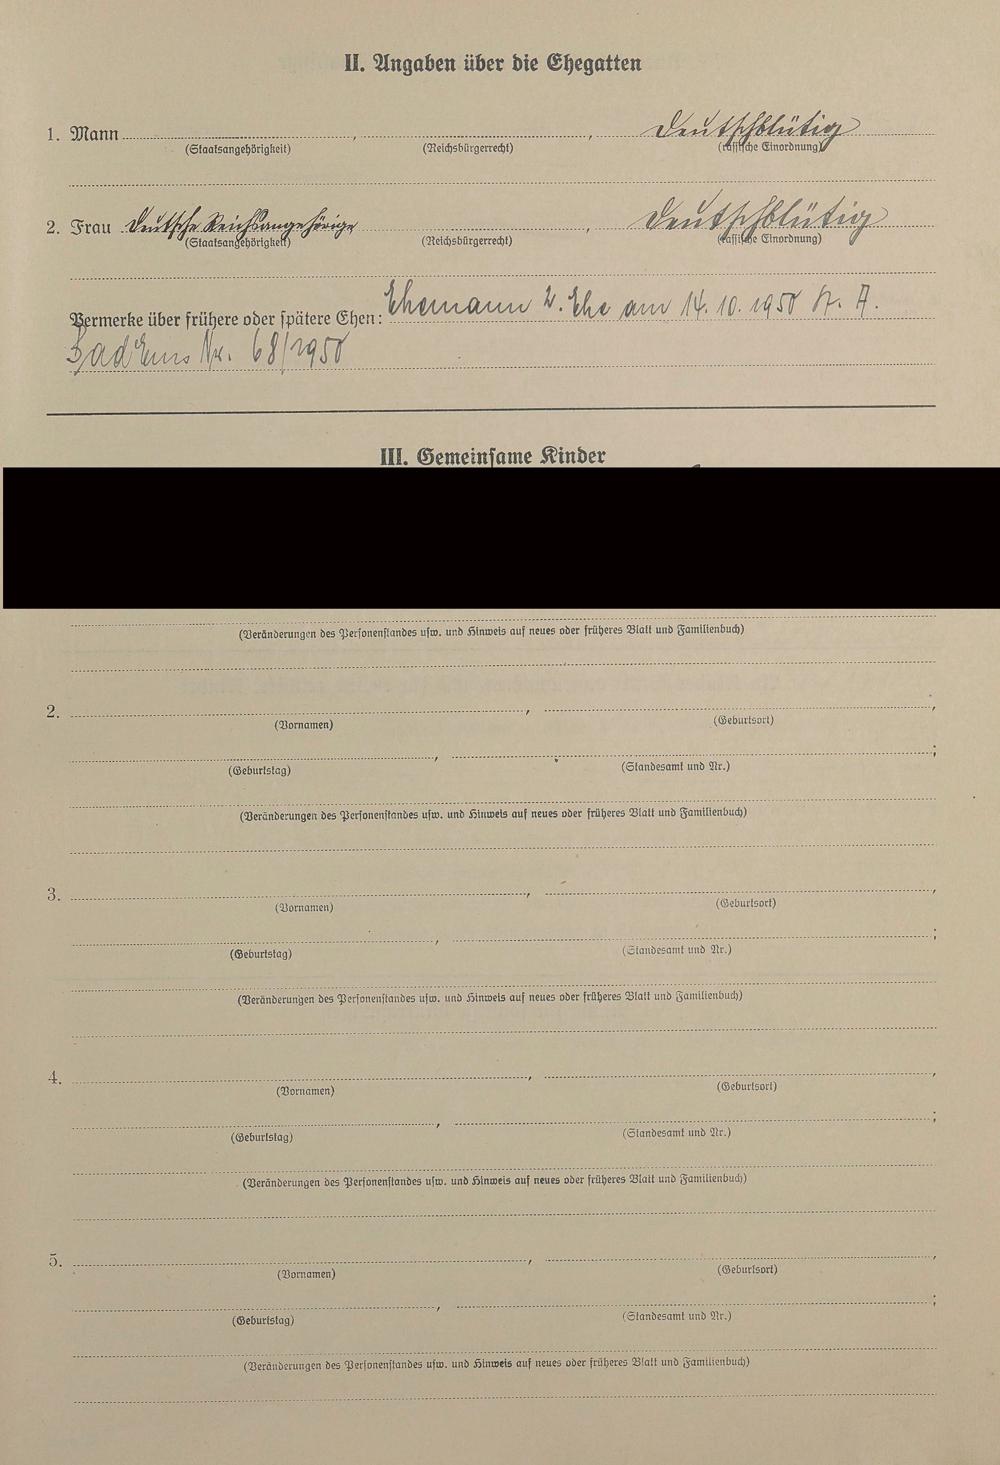 II. Angaben über die Ehegatten
1. Mann , , deutschblütig
(Staatsangehörigkeit) (Reichsbürgerrecht) (rassische Einordnung)
2. Frau Deutsche Reichsangehörige , deutschblütig
(Staatsangehörigkeit) (Reichsbürgerrecht) (rassische Einordnung)
Vermerke über frühere oder spätere Ehen: Ehemann 2. Ehe am 14. 10. 1950 St. A.
Bad Ems Nr. 68/1950
III. Gemeinsame Kinder
(Veränderungen des Personenstandes usw. und Hinweis auf neues oder früheres Blatt und Familienbuch)
2. , ,
(Vornamen) (Geburtsort)
, ;
(Geburtstag) (Standesamt und Nr.)
(Veränderungen des Personenstandes usw. und Hinweis auf neues oder früheres Blatt und Familienbuch)
3. , ,
(Vornamen) (Geburtsort)
, ;
(Geburtstag) (Standesamt und Nr.)
(Veränderungen des Personenstandes usw. und Hinweis auf neues oder früheres Blatt und Familienbuch)
4. , ,
(Vornamen) (Geburtsort)
, ;
(Geburtstag) (Standesamt und Nr.)
(Veränderungen des Personenstandes usw. und Hinweis auf neues oder früheres Blatt und Familienbuch)
5. , ,
(Vornamen) (Geburtsort)
, ;
(Geburtstag) (Standesamt und Nr.)
(Veränderungen des Personenstandes usw. und Hinweis auf neues oder früheres Blatt und Familienbuch)